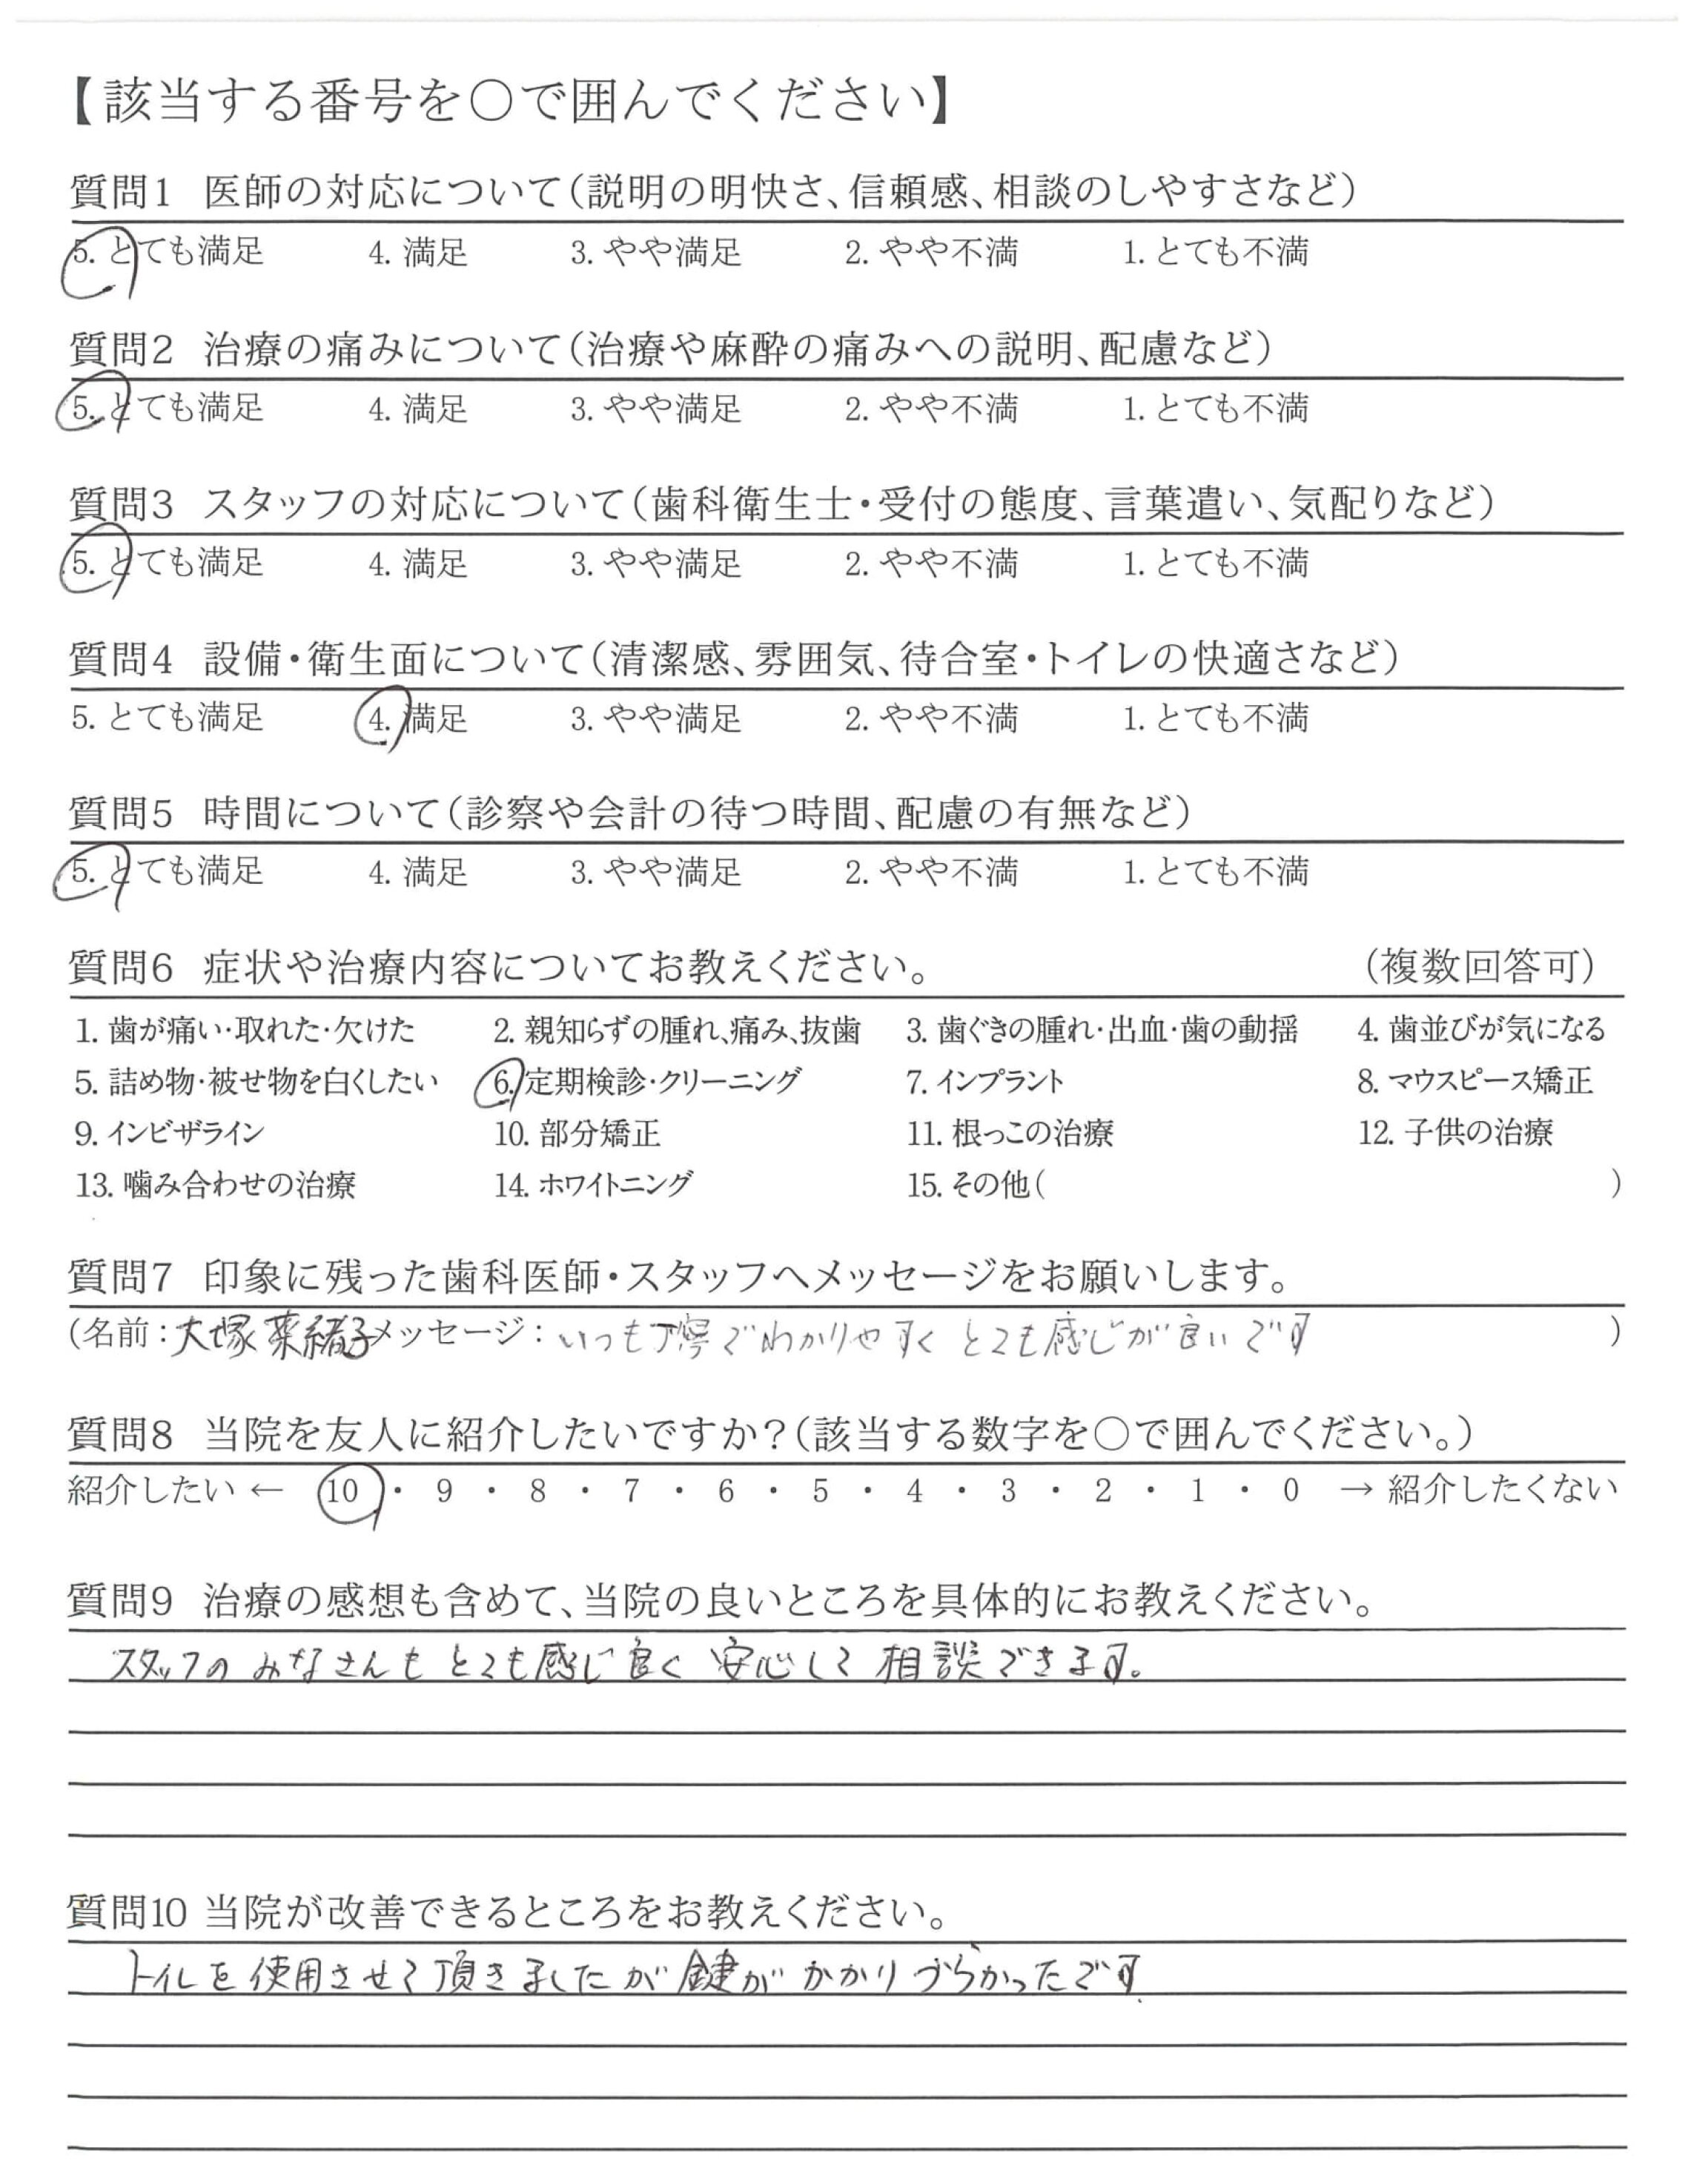 【該当する番号を○で囲んでください】
質問1 医師の対応について(説明の明快さ、信頼感、相談のしやすさなど)
5. とても満足 4. 満足 3. やや満足 2. やや不満 1. とても不満
質問2 治療の痛みについて(治療や麻酔の痛みへの説明、配慮など)
5. とても満足 4. 満足 3. やや満足 2. やや不満 1. とても不満
質問3 スタッフの対応について(歯科衛生士・受付の態度、言葉遣い、気配りなど)
5. とても満足 4. 満足 3. やや満足 2. やや不満 1. とても不満
質問4 設備・衛生面について(清潔感、雰囲気、待合室・トイレの快適さなど)
5. とても満足 4. 満足 3. やや満足 2. やや不満 1. とても不満
質問5 時間について(診察や会計の待つ時間、配慮の有無など)
5. とても満足 4. 満足 3. やや満足 2. やや不満 1. とても不満
質問6 症状や治療内容についてお教えください。 (複数回答可)
1. 歯が痛い・取れた・欠けた 2. 親知らずの腫れ、痛み、抜歯 3. 歯ぐきの腫れ・出血・歯の動揺 4. 歯並びが気になる
5. 詰め物・被せ物を白くしたい 6. 定期検診・クリーニング 7. インプラント 8. マウスピース矯正
9. インビザライン 10. 部分矯正 11. 根っこの治療 12. 子供の治療
13. 噛み合わせの治療 14. ホワイトニング 15. その他( )
質問7 印象に残った歯科医師・スタッフへメッセージをお願いします。
(名前：大塚 菜緒子 メッセージ：いつも丁寧でわかりやすく とても感じが良いです )
質問8 当院を友人に紹介したいですか？(該当する数字を○で囲んでください。)
紹介したい ← 10 ・ 9 ・ 8 ・ 7 ・ 6 ・ 5 ・ 4 ・ 3 ・ 2 ・ 1 ・ 0 → 紹介したくない
質問9 治療の感想も含めて、当院の良いところを具体的にお教えください。
スタッフの みなさんも とても感じ良く 安心して 相談できます。
質問10 当院が改善できるところをお教えください。
トイレを使用させて頂きましたが 鍵が かかりづらかったです